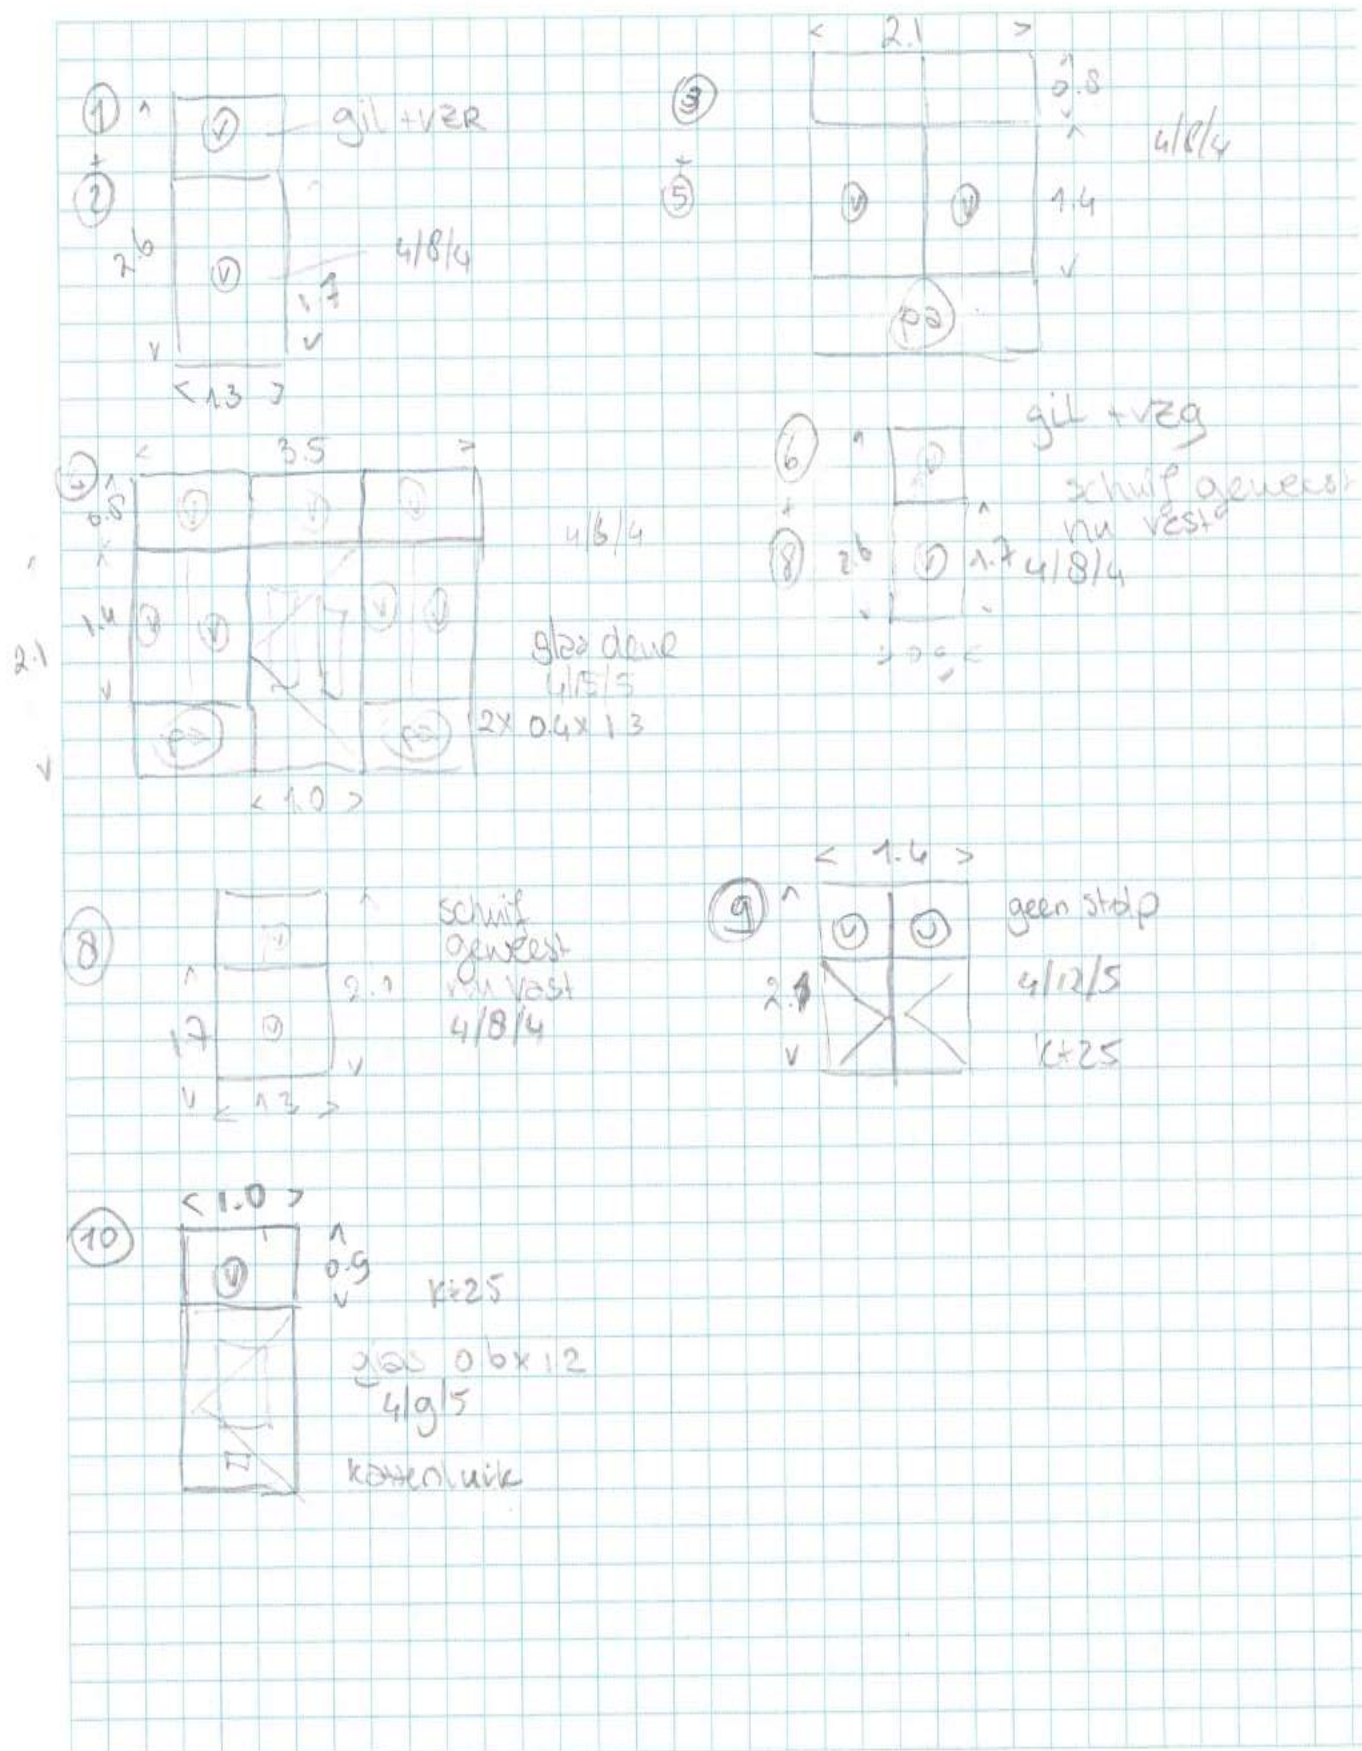 1
+
2
V
gil + vzR
V
4/8/4
2.6
1.7
< 1.3 >
< 2.1 >
3
+
5
0.8
4/8/4
V
V
1.4
pa
4
< 3.5 >
0.8
V
V
V
1.4
V
V
V
V
2.1
glas deur
2x 0.4x 1.3
pa
pa
< 1.0 >
6
+
8
gil + vzg
V
schuif geweest
nu vast
2.6
V
1.7
4/8/4
8
V
schuif
geweest
nu vast
4/8/4
V
2.1
1.7
< 1.3 >
9
< 1.4 >
V
V
geen stolp
2.1
4/12/5
k+25
10
< 1.0 >
V
0.9
k+25
glas 0.6x 1.2
4/9/5
kattenluik